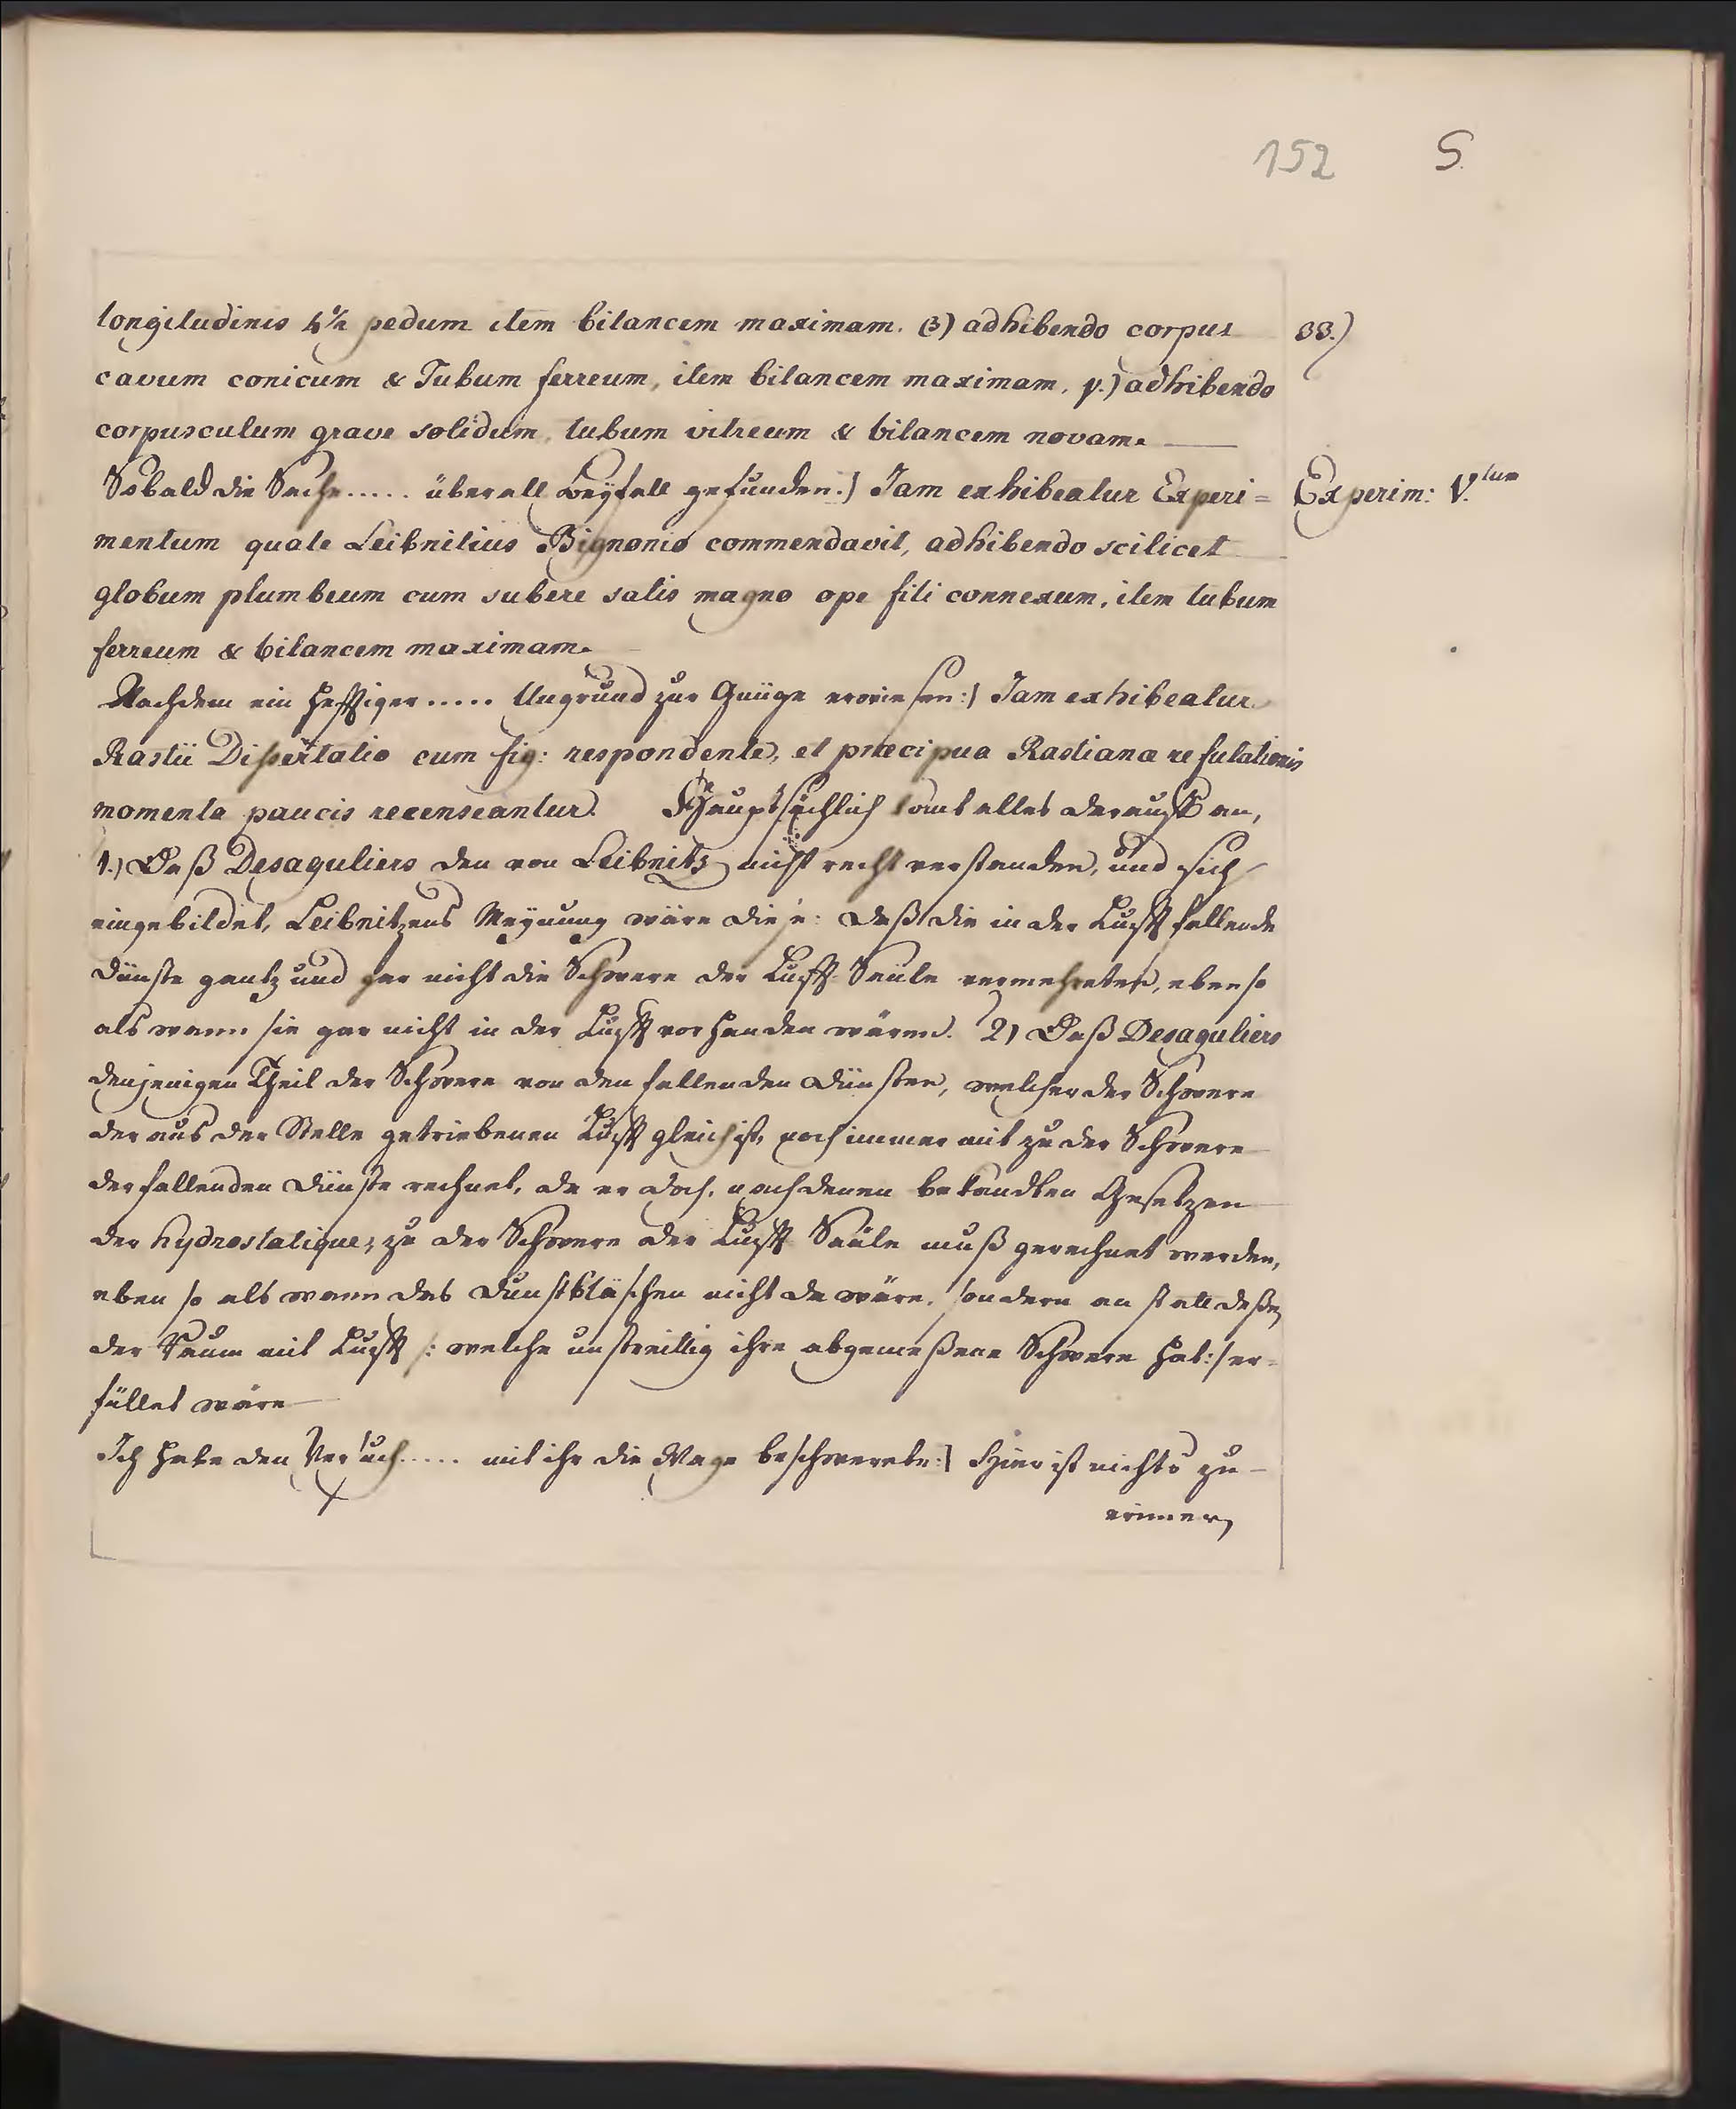 152 S.
longitudinis 4½ pedum item bilancem maximam. β) adhibendo corpus
ββ.)
cavum conicum & Tubum ferreum, item bilancem maximam, γ.) adhibendo
corpusculum grave solidum, tubum vitreum & bilancem novam.
Sobald die Sache..... überall Beyfall gefunden:) Jam exhibeatur Experi=
Experim: V.tum
mentum quale Leibnitius Bignonio commendavit, adhibendo scilicet
globum plumbeum cum subere satis magno ope fili connexum, item tubum
ferreum & bilancem maximam.
Nachdem ein hefftiger..... Ungrund zur Gnüge erwiesen:) Jam exhibeatur
Rastii Dissertatio cum fig: respondente, et præcipua Rastianæ refutationis
momenta paucis recenseantur. Hauptsächlich komt alles darauff an,
1.) Daß Desaguliers den von Leibnitz nicht recht verstanden, und sich
eingebildet, Leibnitzens Meynung wäre diese: daß die in der Lufft fallende
Dünste gantz und gar nicht die Schwere der Lufft-Säule vermehreten, eben so
als wann sie gar nicht in der Lufft vorhanden wären. 2) Daß Desaguliers
denjenigen Theil der Schwere von den fallenden Dünsten, welcher der Schwere
der aus der Stelle getriebenen Lufft gleich ist, noch immer mit zu der Schwere
der fallenden Dünste rechnet, da er doch, nach denen bekandten Gesetzen
der hydrostatique, zu der Schwere der Lufft Säule muß gerechnet werden,
eben so als wann das Dunstbläschen nicht da wäre, sondern an statt deßen
der Raum mit Lufft /: welche unstreittig ihre abgemeßene Schwere hat:/ er=
füllet wäre
Ich habe den Versuch..... mit ihr die Wage beschwerete:) Hier ist nichts zu
erinnern,